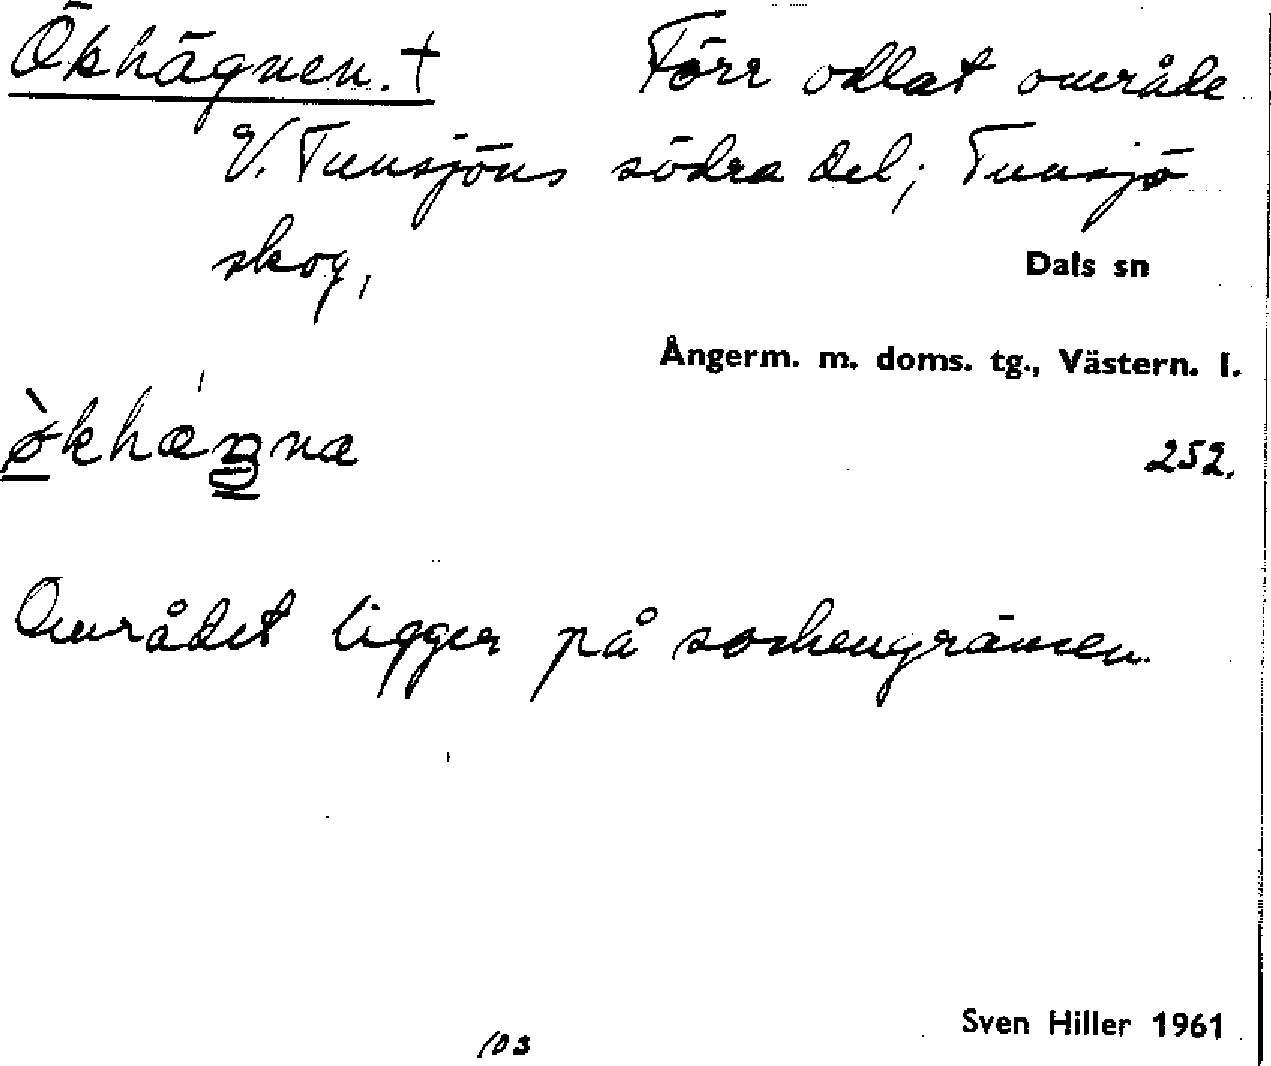 Ökhägnen. † Förr odlat område
V. Tunsjöns södra del; Tunsjö
skog,
Dals sn
Ångerm. m. doms. tg., Västern. l.
252.
Området ligger på sockengränsen.
Sven Hiller 1961
103